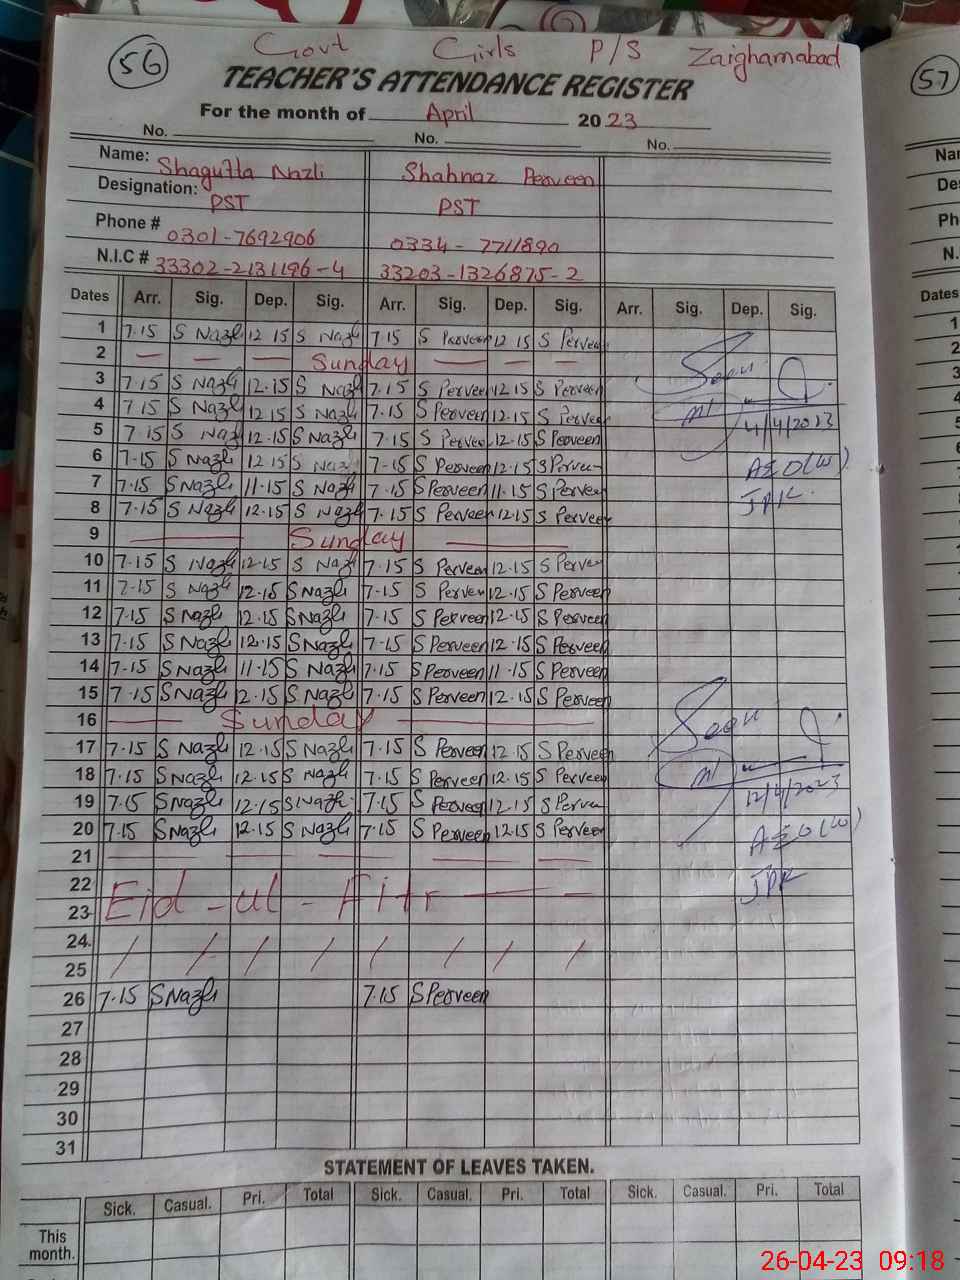 56
Govt Girls P/S Zaighamabad
57
TEACHER'S ATTENDANCE REGISTER
For the month of April 2023
No. No. No.
Name: Shagufta Nazli Shahnaz Perveen
Designation: PST PST
Phone # 0301-7692906 0334-7711890
N.I.C # 33302-2131196-4 33203-1326875-2
Dates Arr. Sig. Dep. Sig. Arr. Sig. Dep. Sig. Arr. Sig. Dep. Sig.
1 7.15 S Nazli 12 15 S Nazli 7.15 S Perveen 12 15 S Perveen
2 Sunday
3 7.15 S Nazli 12.15 S Nazli 7.15 S Perveen 12.15 S Perveen
4 7.15 S Nazli 12.15 S Nazli 7.15 S Perveen 12.15 S Perveen
4/4/2023
5 7.15 S Nazli 12.15 S Nazli 7.15 S Perveen 12.15 S Perveen
6 7.15 S Nazli 12.15 S Nazli 7-15 S Perveen 12.15 S Perveen
AEO(W)
7 7.15 S Nazli 11.15 S Nazli 7.15 S Perveen 11.15 S Perveen
JPK
8 7.15 S Nazli 12.15 S Nazli 7.15 S Perveen 12.15 S Perveen
9 Sunday
10 7.15 S Nazli 12.15 S Nazli 7.15 S Perveen 12.15 S Perveen
11 7.15 S Nazli 12.15 S Nazli 7.15 S Perveen 12.15 S Perveen
12 7.15 S Nazli 12.15 S Nazli 7.15 S Perveen 12.15 S Perveen
13 7.15 S Nazli 12.15 S Nazli 7.15 S Perveen 12.15 S Perveen
14 7.15 S Nazli 11.15 S Nazli 7.15 S Perveen 11.15 S Perveen
15 7.15 S Nazli 12.15 S Nazli 7.15 S Perveen 12.15 S Perveen
16 Sunday
Seen
17 7.15 S Nazli 12.15 S Nazli 7.15 S Perveen 12.15 S Perveen
18 7.15 S Nazli 12.15 S Nazli 7.15 S Perveen 12.15 S Perveen
12/4/2023
19 7.15 S Nazli 12.15 S Nazli 7.15 S Perveen 12.15 S Perveen
20 7.15 S Nazli 12.15 S Nazli 7.15 S Perveen 12.15 S Perveen
AEO(W)
21
22 Eid-ul-Fitr
JPK
23
24
25
26 7.15 S Nazli 7.15 S Perveen
27
28
29
30
31
STATEMENT OF LEAVES TAKEN.
Sick. Casual. Pri. Total Sick. Casual. Pri. Total Sick. Casual. Pri. Total
This month.
26-04-23 09:18